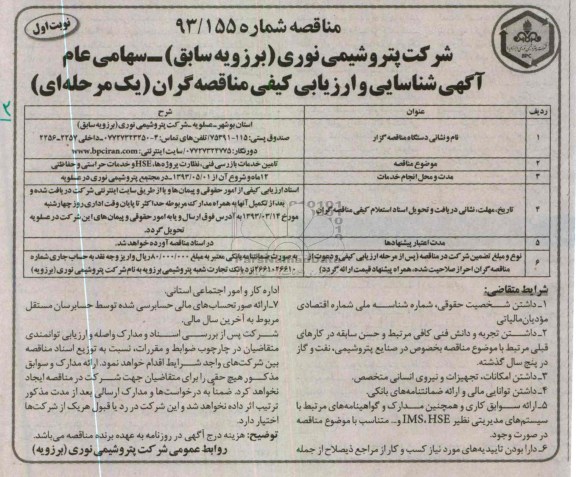 مناقصه شماره ۹۳/۱۵۵
نوبت اول
شرکت پتروشیمی نوری (برزویه سابق) ــ سهامی عام
آگهی شناسایی و ارزیابی کیفی مناقصه گران (یک مرحله‌ای)
BPC
ردیف عنوان شرح
۱ نام و نشانی دستگاه مناقصه گزار
استان بوشهر ـ عسلویه ـ شرکت پتروشیمی نوری (برزویه سابق)
صندوق پستی: ۱۱۵-۷۵۳۹۱ / تلفن های تماس: ۴-۰۷۷۲۷۳۲۳۲۵۰ داخلی ۲۲۵۷-۲۲۵۶
دورنگار: ۰۷۷۲۷۳۲۳۷۷۵ / سایت اینترنتی: www.bpciran.com
۲ موضوع مناقصه تامین خدمات بازرسی فنی، نظارت پروژه‌ها، HSE و خدمات حراستی و حفاظتی
۳ مدت و محل انجام خدمات ۱۲ماه و شروع آن از ۱۳۹۳/۰۵/۰۱ ـ در مجتمع پتروشیمی نوری در عسلویه
۴ تاریخ، مهلت، نشانی دریافت و تحویل اسناد استعلام کیفی مناقصه گران
اسناد ارزیابی کیفی از امور حقوقی و پیمان‌ها و یا از طریق سایت اینترنتی شرکت دریافت شده و
بعد از تکمیل آنها به همراه مدارک مربوطه حداکثر تا پایان وقت اداری روز چهارشنبه
مورخ ۱۳۹۳/۰۳/۱۴ به آدرس فوق ارسال و یا به امور حقوقی و پیمان های این شرکت در عسلویه
تحویل گردد.
۵ مدت اعتبار پیشنهادها در اسناد مناقصه آورده خواهد شد.
۶ نوع و مبلغ تضمین شرکت در مناقصه (پس از مرحله ارزیابی کیفی و دعوت از
مناقصه گران احراز صلاحیت شده، همراه پیشنهاد قیمت ارائه گردد)
به صورت ضمانتنامه بانکی معتبر به مبلغ ۸۰/۰۰۰/۰۰۰ ریال و یا واریز وجه نقد به حساب جاری شماره
۲۶۶۱۰۲۶۶۱۰ نزد بانک تجارت شعبه پتروشیمی برزویه به نام شرکت پتروشیمی نوری (برزویه)
شرایط متقاضی:
۱ـ داشتن شخصیت حقوقی، شماره شناسه ملی شماره اقتصادی
مؤدیان مالیاتی
۲ـ داشتن تجربه و دانش فنی کافی مرتبط و حسن سابقه در کارهای
قبلی مرتبط با موضوع مناقصه بخصوص در صنایع پتروشیمی، نفت و گاز
در پنج سال گذشته.
۳ـ داشتن امکانات، تجهیزات و نیروی انسانی متخصص.
۴ـ داشتن توانایی مالی و ارائه ضمانتنامه‌های بانکی.
۵ـ ارائه سوابق کاری و همچنین مدارک و گواهینامه‌های مرتبط با
سیستم‌های مدیریتی نظیر IMS، HSE و... متناسب با موضوع مناقصه
در صورت وجود.
۶ـ دارا بودن تاییدیه‌های مورد نیاز کسب و کار از مراجع ذیصلاح از جمله
اداره کار و امور اجتماعی استانی.
۷ـ ارائه صورتحساب‌های مالی حسابرسی شده توسط حسابرسان مستقل
مربوط به آخرین سال مالی.
شرکت پس از بررسی اسناد و مدارک واصله و ارزیابی توانمندی
متقاضیان در چارچوب ضوابط و مقررات، نسبت به توزیع اسناد مناقصه
بین شرکت‌های واجد شرایط اقدام خواهد نمود. ارائه مدارک و سوابق
مذکور هیچ حقی را برای متقاضیان جهت شرکت در مناقصه ایجاد
نخواهد کرد. ضمناً به درخواست‌ها و مدارک ارسالی بعد از مدت مذکور
ترتیب اثر داده نخواهد شد و این شرکت در رد یا قبول هر یک از شرکت‌ها
اختیار دارد.
توضیح: هزینه درج آگهی در روزنامه به عهده برنده مناقصه می‌باشد.
روابط عمومی شرکت پتروشیمی نوری (برزویه)